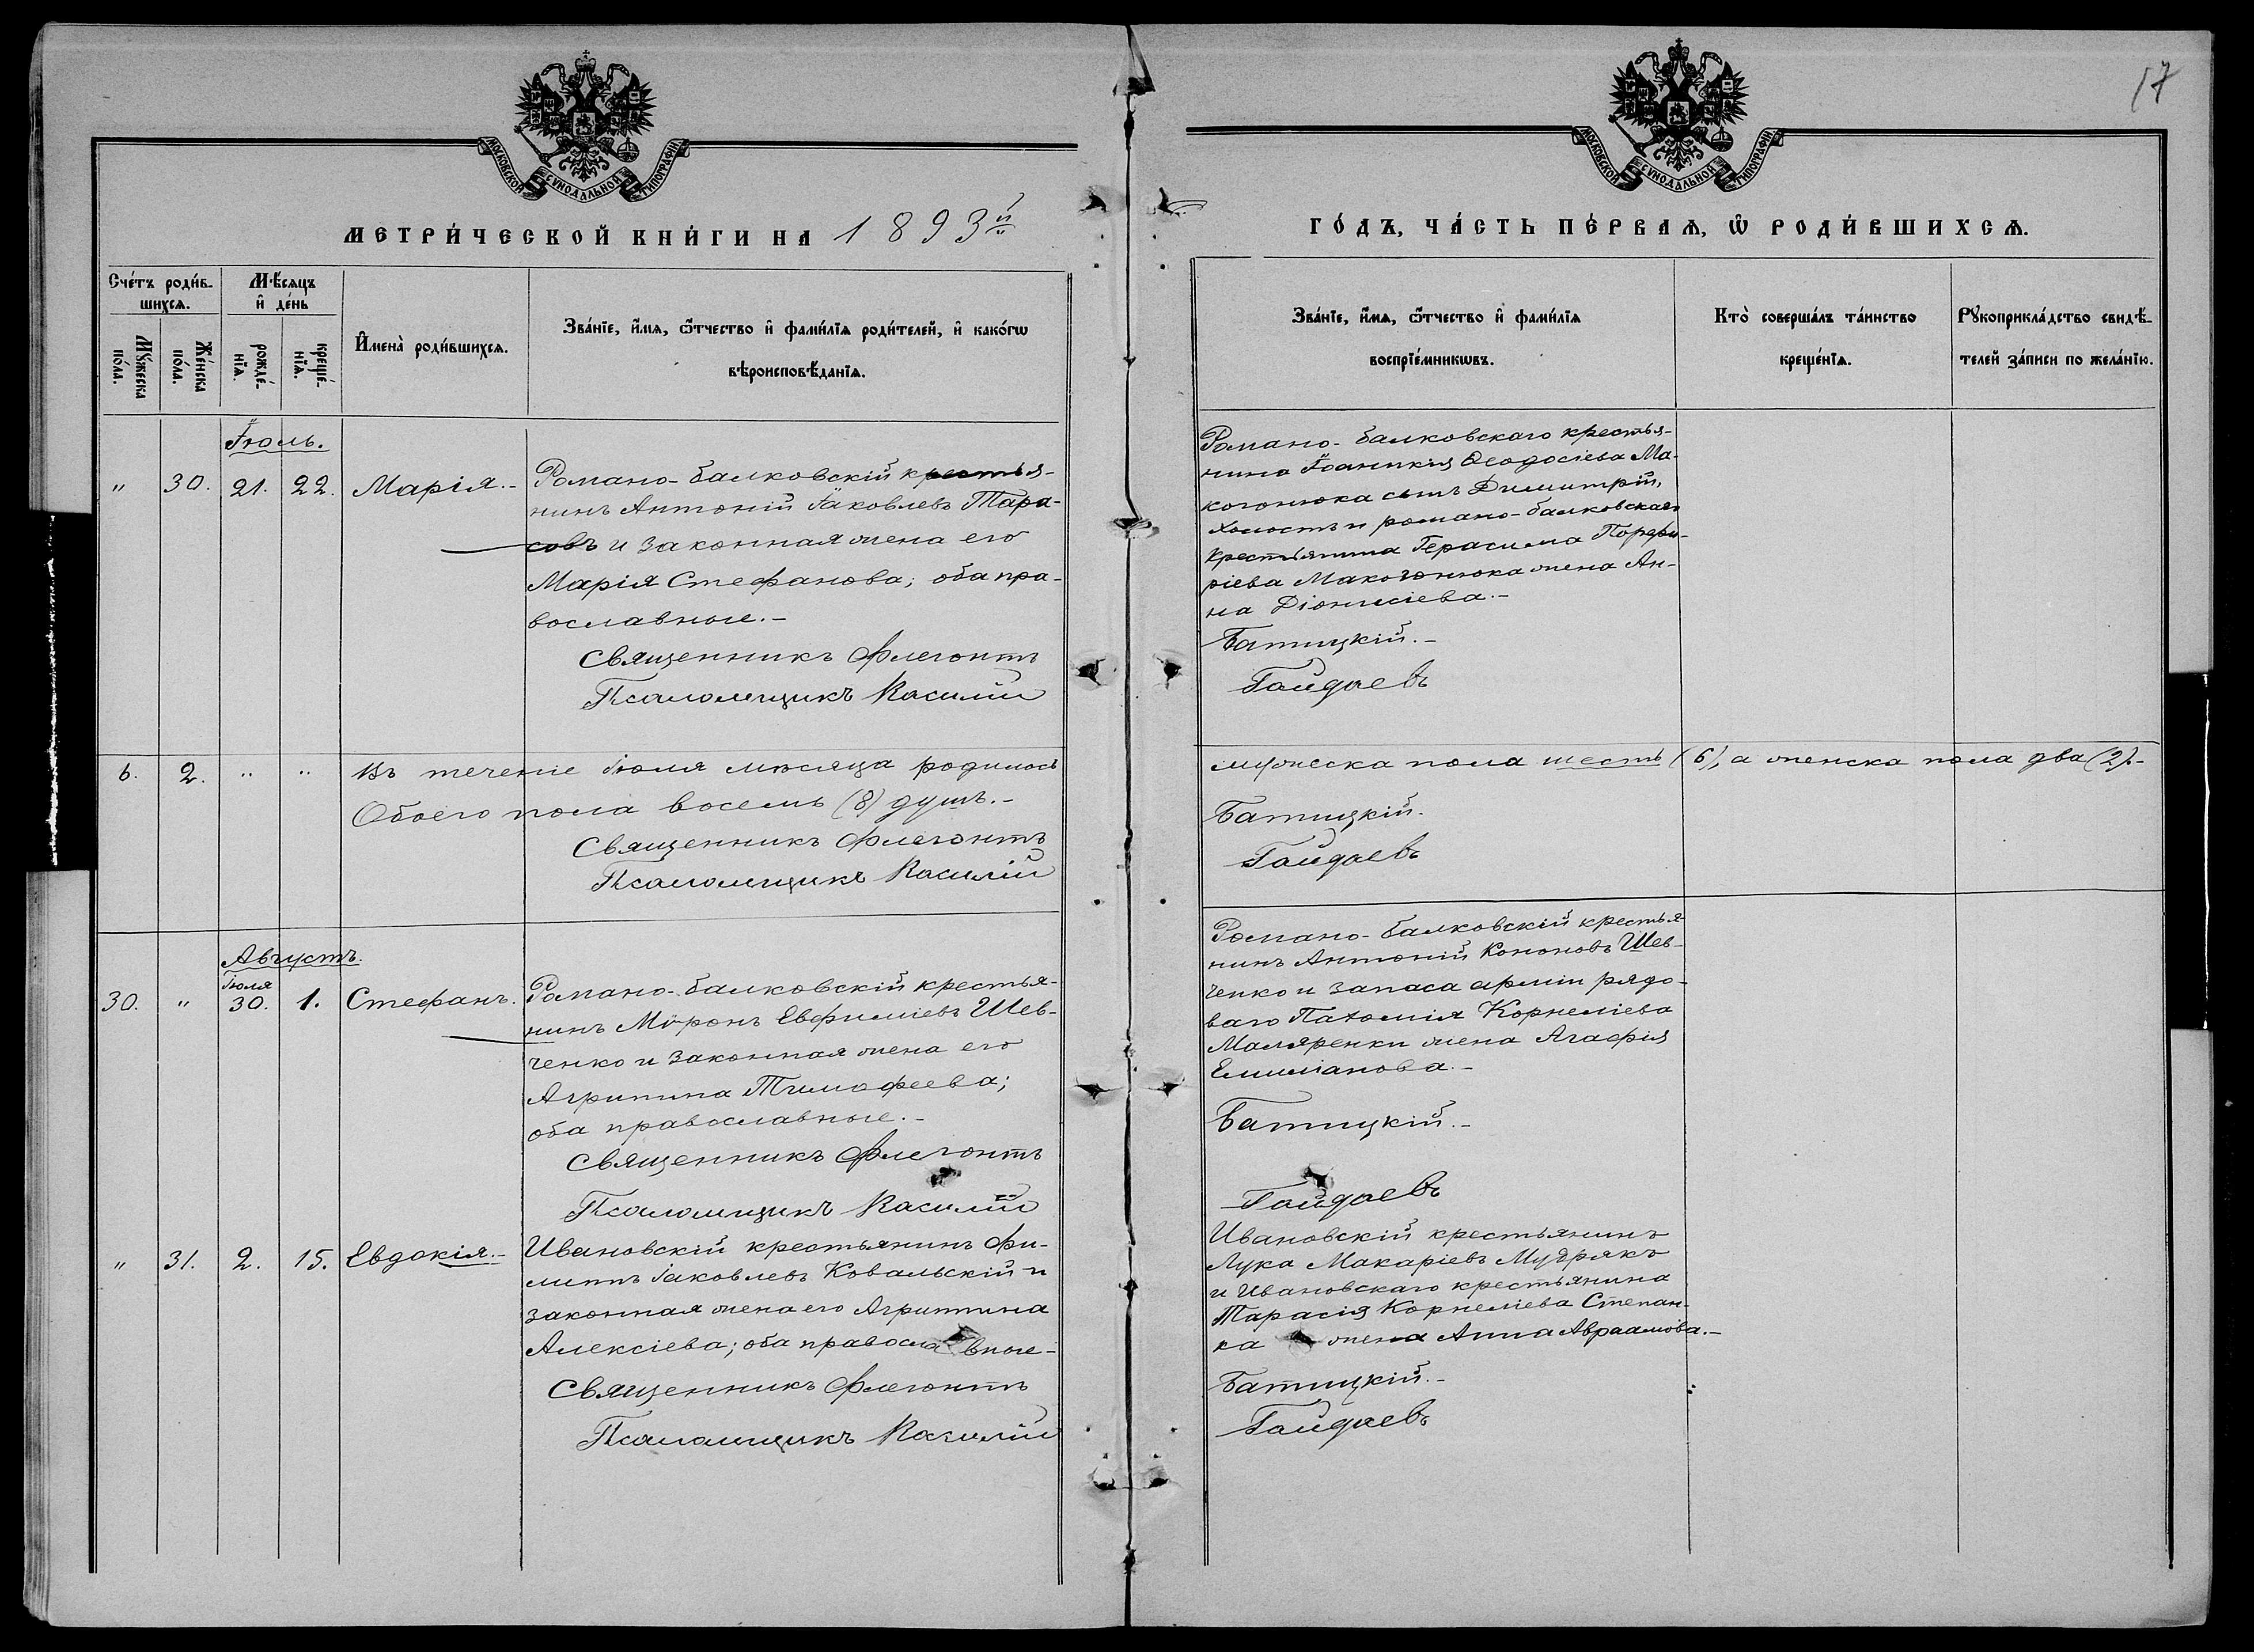 17
МОСКОВСКОЙ СѴНОДАЛЬНОЙ ТИПОГРАФІИ
МОСКОВСКОЙ СѴНОДАЛЬНОЙ ТИПОГРАФІИ
МЕТРИ́ЧЕСКОЙ КНИ́ГИ НА 1893й
ГО́ДЪ, ЧА́СТЬ ПЕ́РВАѦ, Ѡ҆ РОДИ́ВШИХСѦ.
Сче́тъ роди́в-
шихсѧ.
Мѣ́сяцъ
и҆ де́нь
Мꙋ́жеска
по́ла.
Же́нска
по́ла.
рожде́-
нїѧ.
креще́-
нїѧ.
И҆мена̀ роди́вшихсѧ.
Зва́нїе, и҆́мѧ, ѻ҆́тчество и҆ фами́лїѧ роди́телей, и҆ како́гѡ
вѣроисповѣ́данїѧ.
Зва́нїе, и҆́мѧ, ѻ҆́тчество и҆ фами́лїѧ
воспрїе́мникѡвъ.
Кто̀ соверша́лъ та́инство
креще́нїѧ.
Рꙋкоприкла́дство свидѣ́-
телей за́писи по жела́нїю.
Іюль.
" 30. 21. 22. Марія.-
Романо-балковскій крестья-
нинъ Антоній Іаковлевъ Тара-
совъ и законная жена его
Марія Стефанова; оба пра-
вославные.-
Священникъ Флегонтъ
Псаломщикъ Василій
Романо-балковскаго крестья-
нина Іоаникія Ѳеодосіева Ма-
когонюка сынъ Димитрій,
холостъ и романо-балковскаго
крестьянина Герасима Порфи-
ріева Макогонюка жена Ан-
на Діонисіева.-
Батицкій.-
Гайдаевъ
6. 2. " " Въ теченіе Іюля мѣсяца родилось
Обоего пола восемь (8) душъ.-
Священникъ Флегонтъ
Псаломщикъ Василій
мужеска пола шесть (6), а женска пола два (2).-
Батицкій.
Гайдаевъ
Августъ.
Іюля
30. " 30. 1. Стефанъ.
Романо-балковскій крестья-
нинъ Мѵронъ Евфиміевъ Шев-
ченко и законная жена его
Агрипина Тимофеева;
оба православные.-
Священникъ Флегонтъ
Псаломщикъ Василій
Романо-балковскій крестья-
нинъ Антоній Кононовъ Шев-
ченко и запаса арміи рядо-
ваго Пахомія Корнеліева
Маляренки жена Агафія
Емиліанова.-
Батицкій.-
Гайдаевъ
" 31. 2. 15. Евдокія.-
Ивановскій крестьянинъ Фи-
липъ Іаковлевъ Ковальскій и
законная жена его Агриппина
Алексіева; оба православные-
Священникъ Флегонтъ
Псаломщикъ Василій
Ивановскій крестьянинъ
Лука Макаріевъ Мудрякъ
и Ивановскаго крестьянина
Тарасія Корнеліева Степан-
ка жена Анна Авраамова.-
Батицкій.-
Гайдаевъ